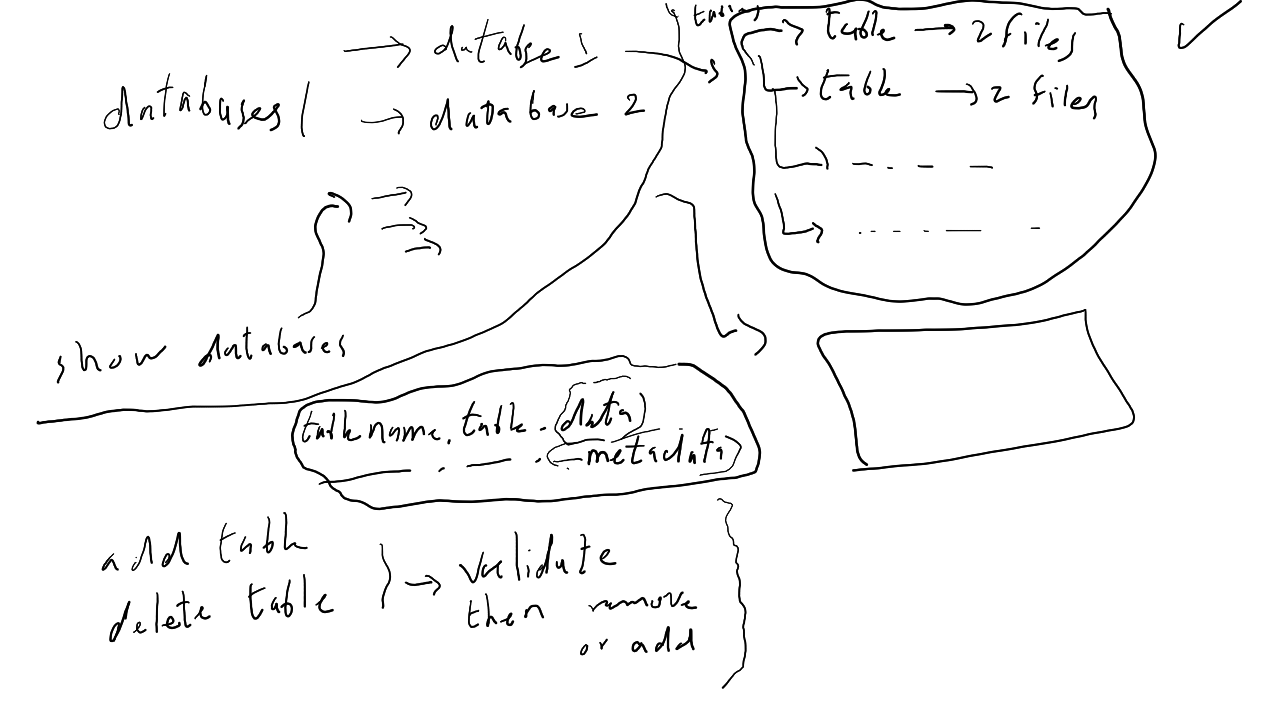 databases/
→ databse 1
→ database 2
→ table → 2 files
→ table → 2 files
show databases
tablename.table.data
metadata
add table
delete table
→ validate
then remove
or add